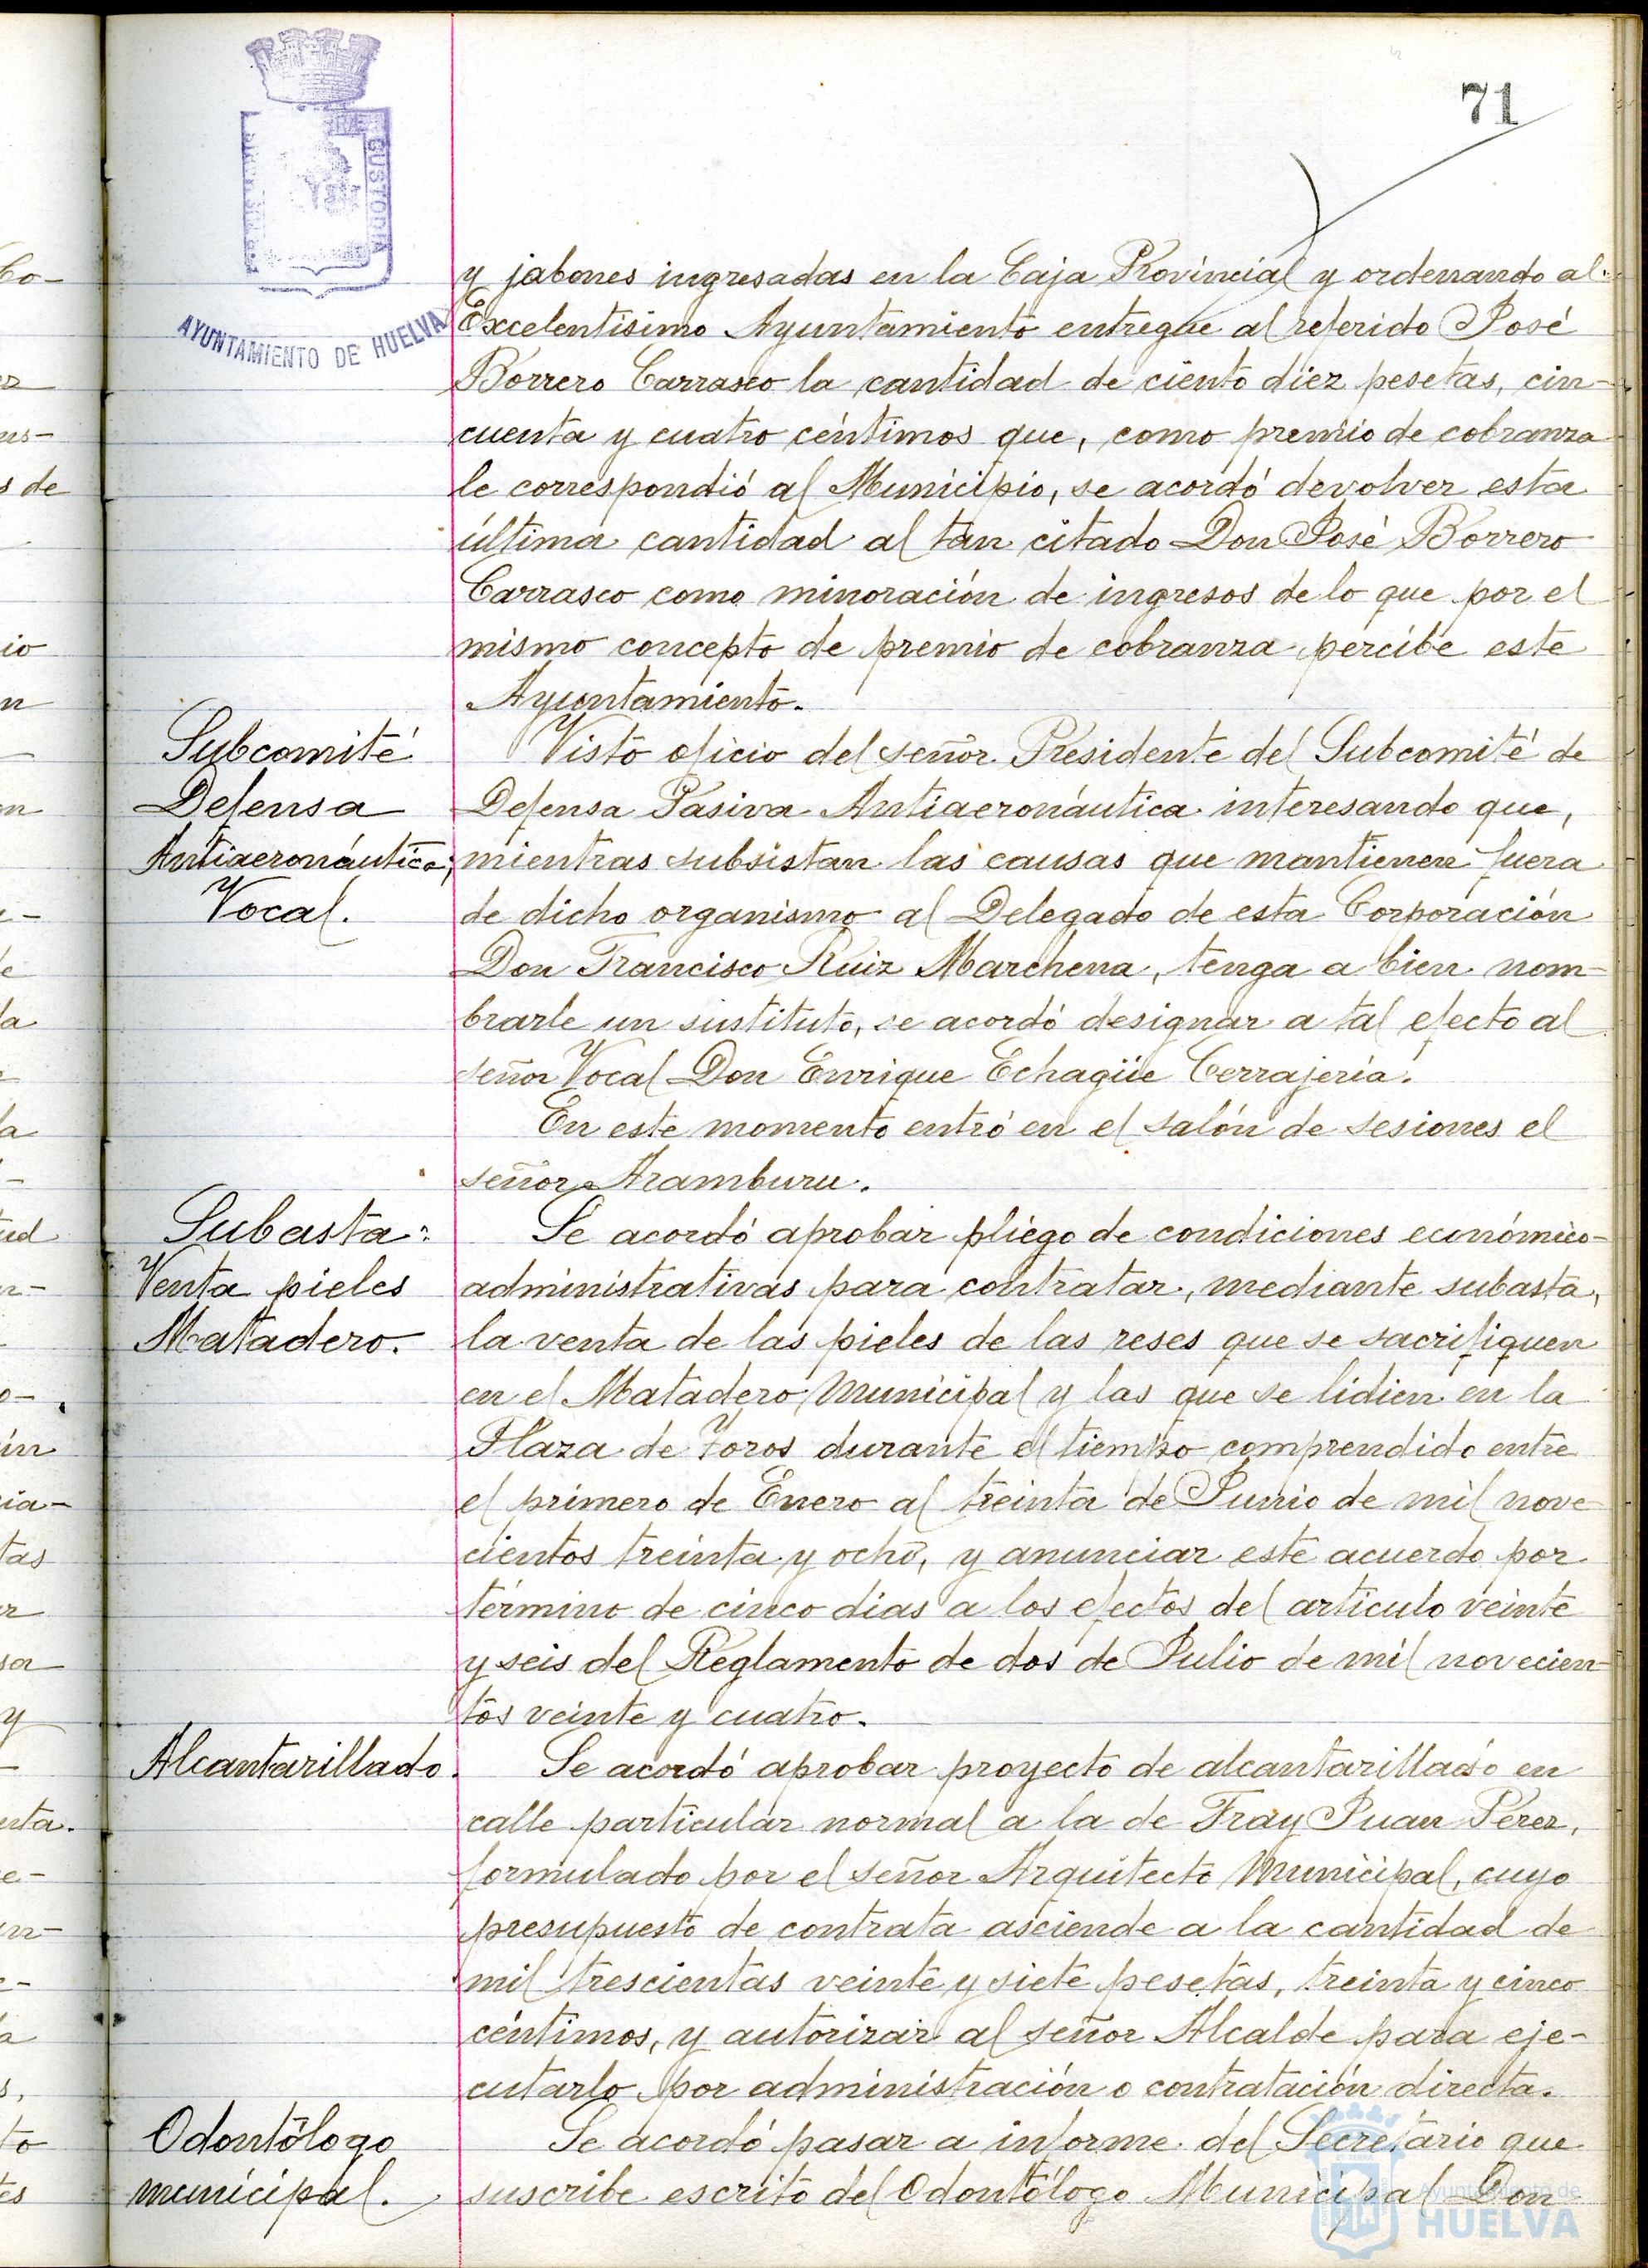 71
CUSTODIA
AYUNTAMIENTO DE HUELVA
y jabones ingresadas en la Caja Provincial y ordenando al
Excelentísimo Ayuntamiento entregue al referido José
Borrero Carrasco la cantidad de ciento diez pesetas, cin-
cuenta y cuatro céntimos que, como premio de cobranza
le correspondió al Municipio, se acordó devolver esta
última cantidad al tan citado Don José Borrero
Carrasco como minoración de ingresos de lo que por el
mismo concepto de premio de cobranza percibe este
Ayuntamiento.
Subcomité
Defensa
Antiaeronáutica;
Vocal.
Visto oficio del señor Presidente del Subcomité de
Defensa Pasiva Antiaeronáutica interesando que,
mientras subsistan las causas que mantienen fuera
de dicho organismo al Delegado de esta Corporación
Don Francisco Ruiz Marchena, tenga a bien nom-
brarle un sustituto, se acordó designar a tal efecto al
señor Vocal Don Enrique Echagüe Cerrajería.
En este momento entró en el salón de sesiones el
señor Aramburu.
Subasta:
Venta pieles
Matadero.
Se acordó aprobar pliego de condiciones económico-
administrativas para contratar, mediante subasta,
la venta de las pieles de las reses que se sacrifiquen
en el Matadero Municipal y las que se lidien en la
Plaza de Toros durante el tiempo comprendido entre
el primero de Enero al treinta de Junio de mil nove
cientos treinta y ocho, y anunciar este acuerdo por
término de cinco días a los efectos del artículo veinte
y seis del Reglamento de dos de Julio de mil novecien-
tos veinte y cuatro.
Alcantarillado.
Se acordó aprobar proyecto de alcantarillado en
calle particular normal a la de Fray Juan Pérez,
formulado por el señor Arquitecto Municipal, cuyo
presupuesto de contrata asciende a la cantidad de
mil trescientas veinte y siete pesetas, treinta y cinco
céntimos, y autorizar al señor Alcalde para eje-
cutarlo por administración o contratación directa.
Odontólogo
municipal.
Se acordó pasar a informe del Secretario que
suscribe escrito del Odontólogo Municipal Don
Ayuntamiento de
HUELVA